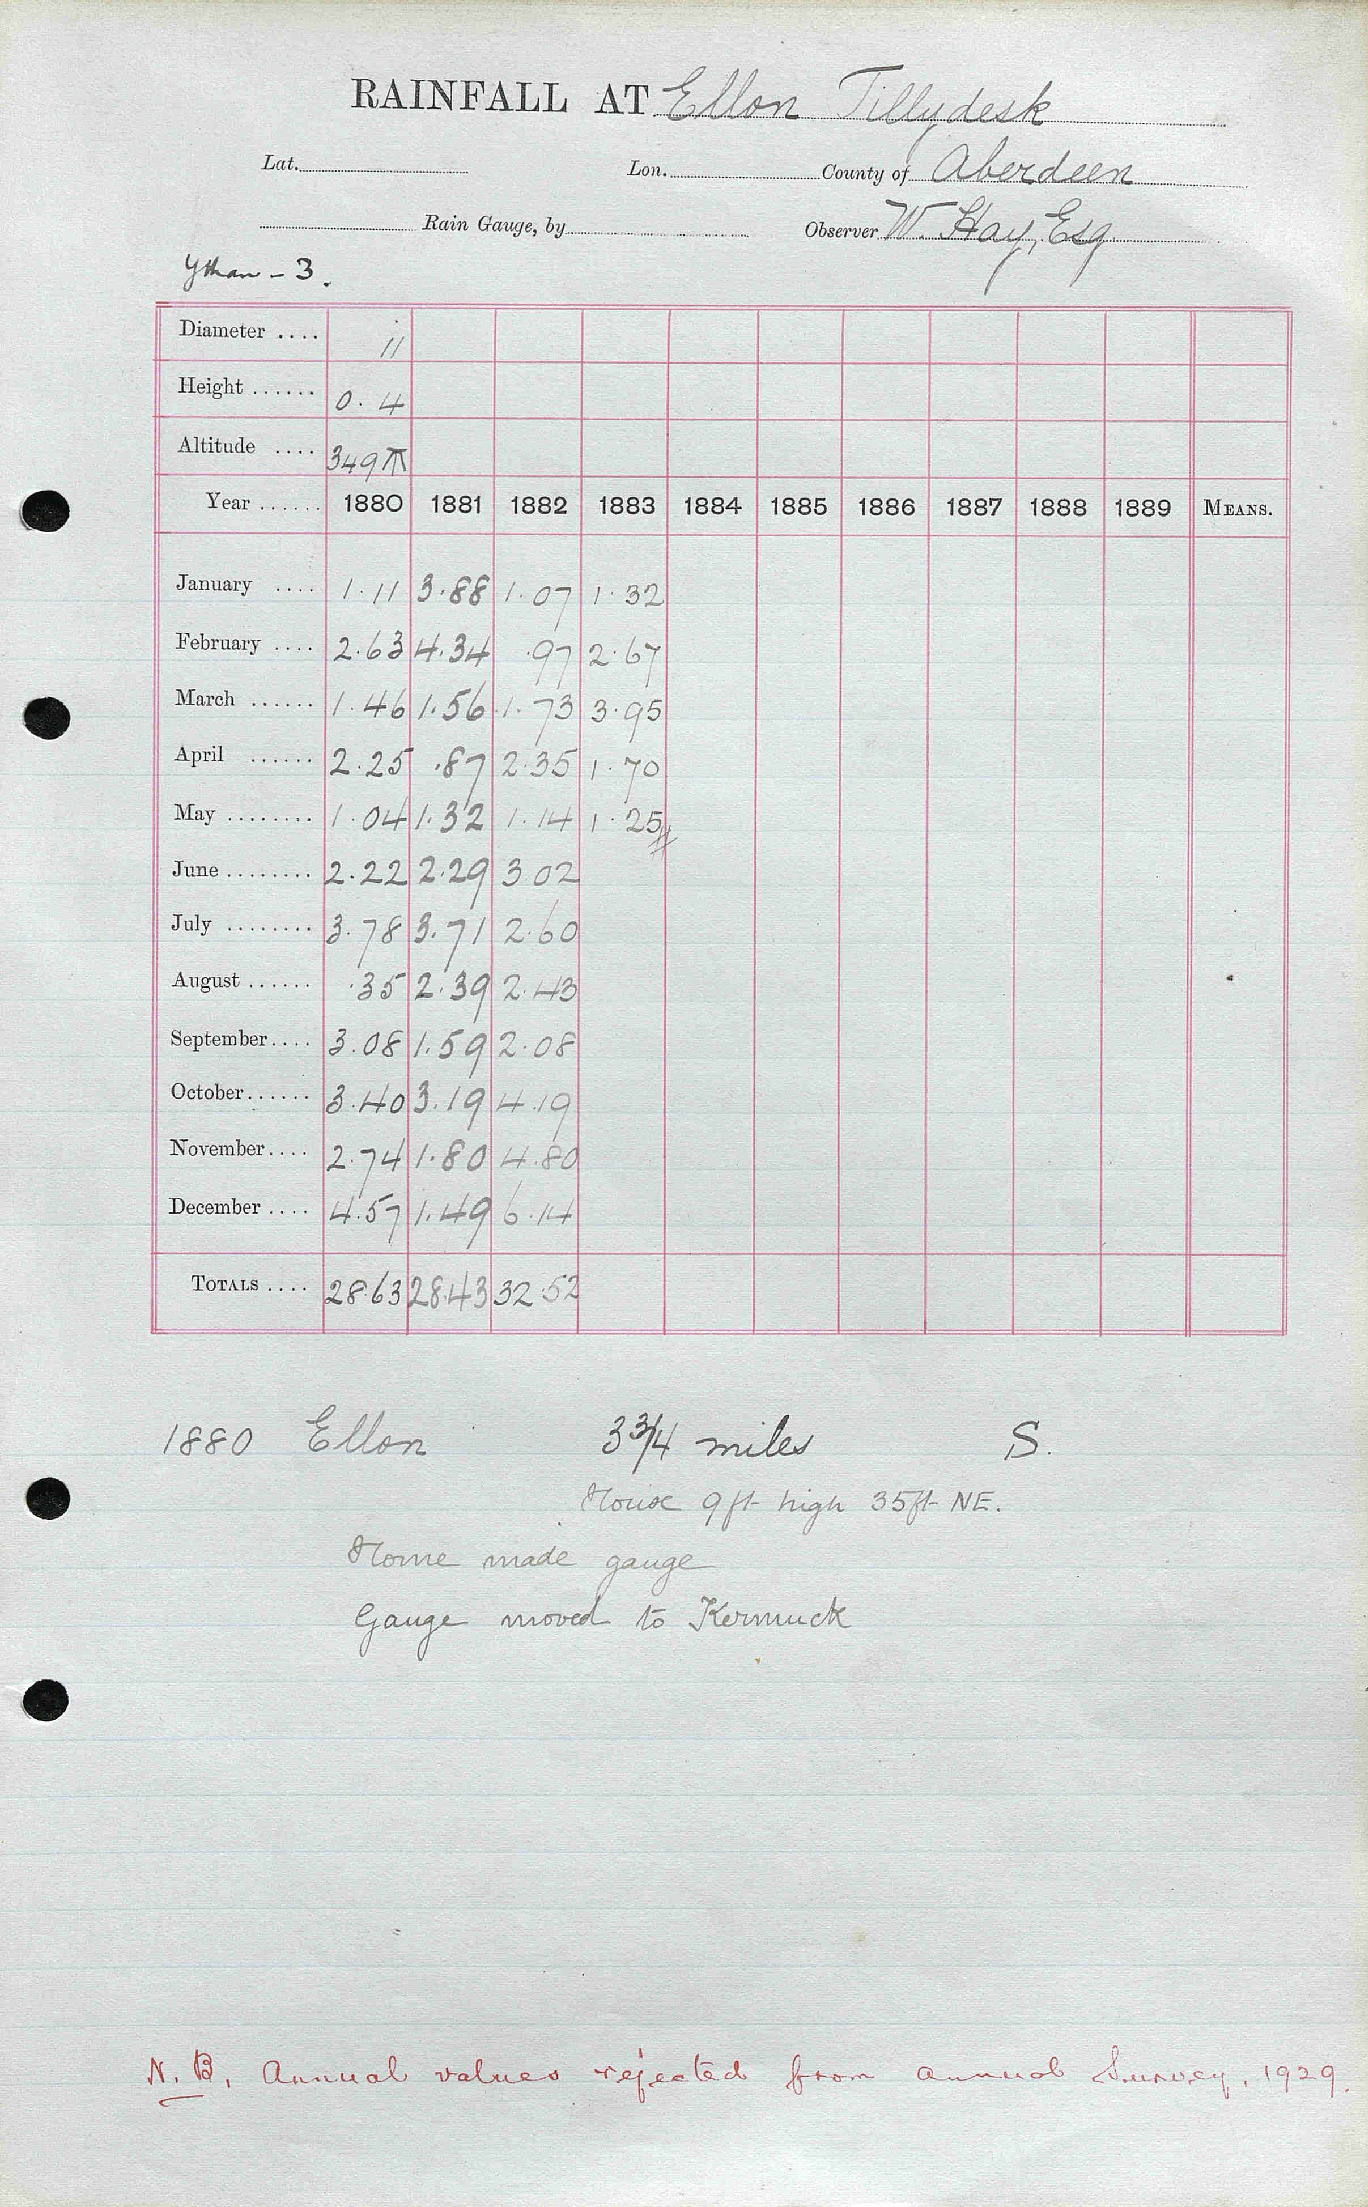 RAINFALL AT Ellon Tillydesk
Lat. Lon. County of Aberdeen
Rain Gauge, by Observer W. Hay, Esq.
Ythan - 3.
Diameter .... 11
Height ...... 0.4
Altitude .... 349
Year ...... 1880 1881 1882 1883 1884 1885 1886 1887 1888 1889 MEANS.
January .... 1.11 3.88 1.07 1.32
February .... 2.63 4.34 .97 2.67
March ...... 1.46 1.56 1.73 3.95
April ...... 2.25 .87 2.35 1.70
May ........ 1.04 1.32 1.14 1.25
June ........ 2.22 2.29 3.02
July ........ 3.78 3.71 2.60
August ...... .35 2.39 2.43
September .... 3.08 1.59 2.08
October ...... 3.40 3.19 4.19
November .... 2.74 1.80 4.80
December .... 4.57 1.49 6.14
TOTALS .... 28.63 28.43 32.52
1880 Ellon 3 3/4 miles S.
House 9ft high 35ft NE.
Home made gauge
Gauge moved to Kermuck
N.B. Annual values rejected from Annual Survey, 1929.